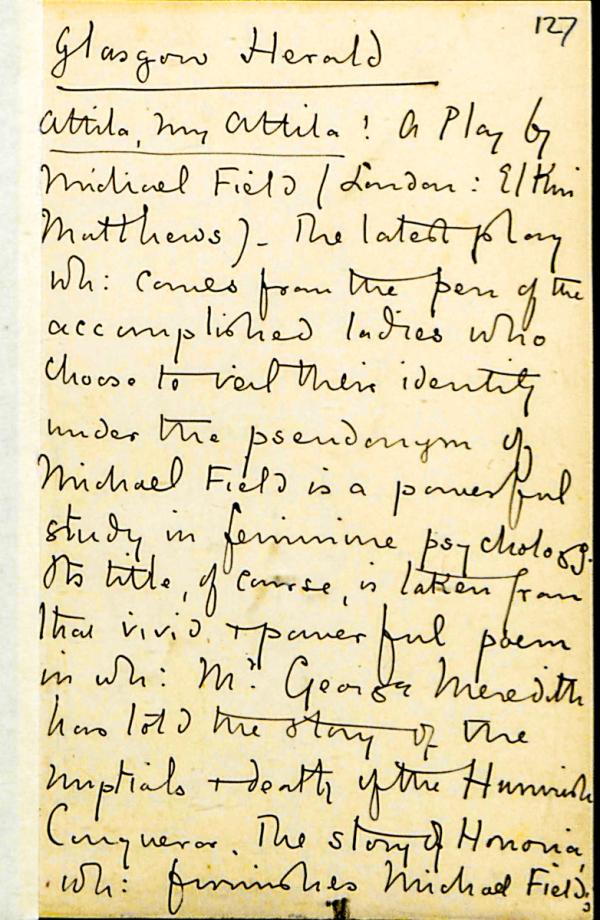 127
Glasgow Herald
Attila, my Attila! A Play by
Michael Field (London: Elkin
Matthews)- The latest play
wh: comes from the pen of the
accomplished ladies who
choose to veil their identity
under the pseudonym of
Michael Field is a powerful
study in feminine psychology.
Its title, of course, is taken from
that vivid + powerful poem
in wh: Mr. George Meredith
has told the story of the
nuptials + death of the Hunnish
Conqueror. The story of Honoria,
wh: furnishes Michael Field,